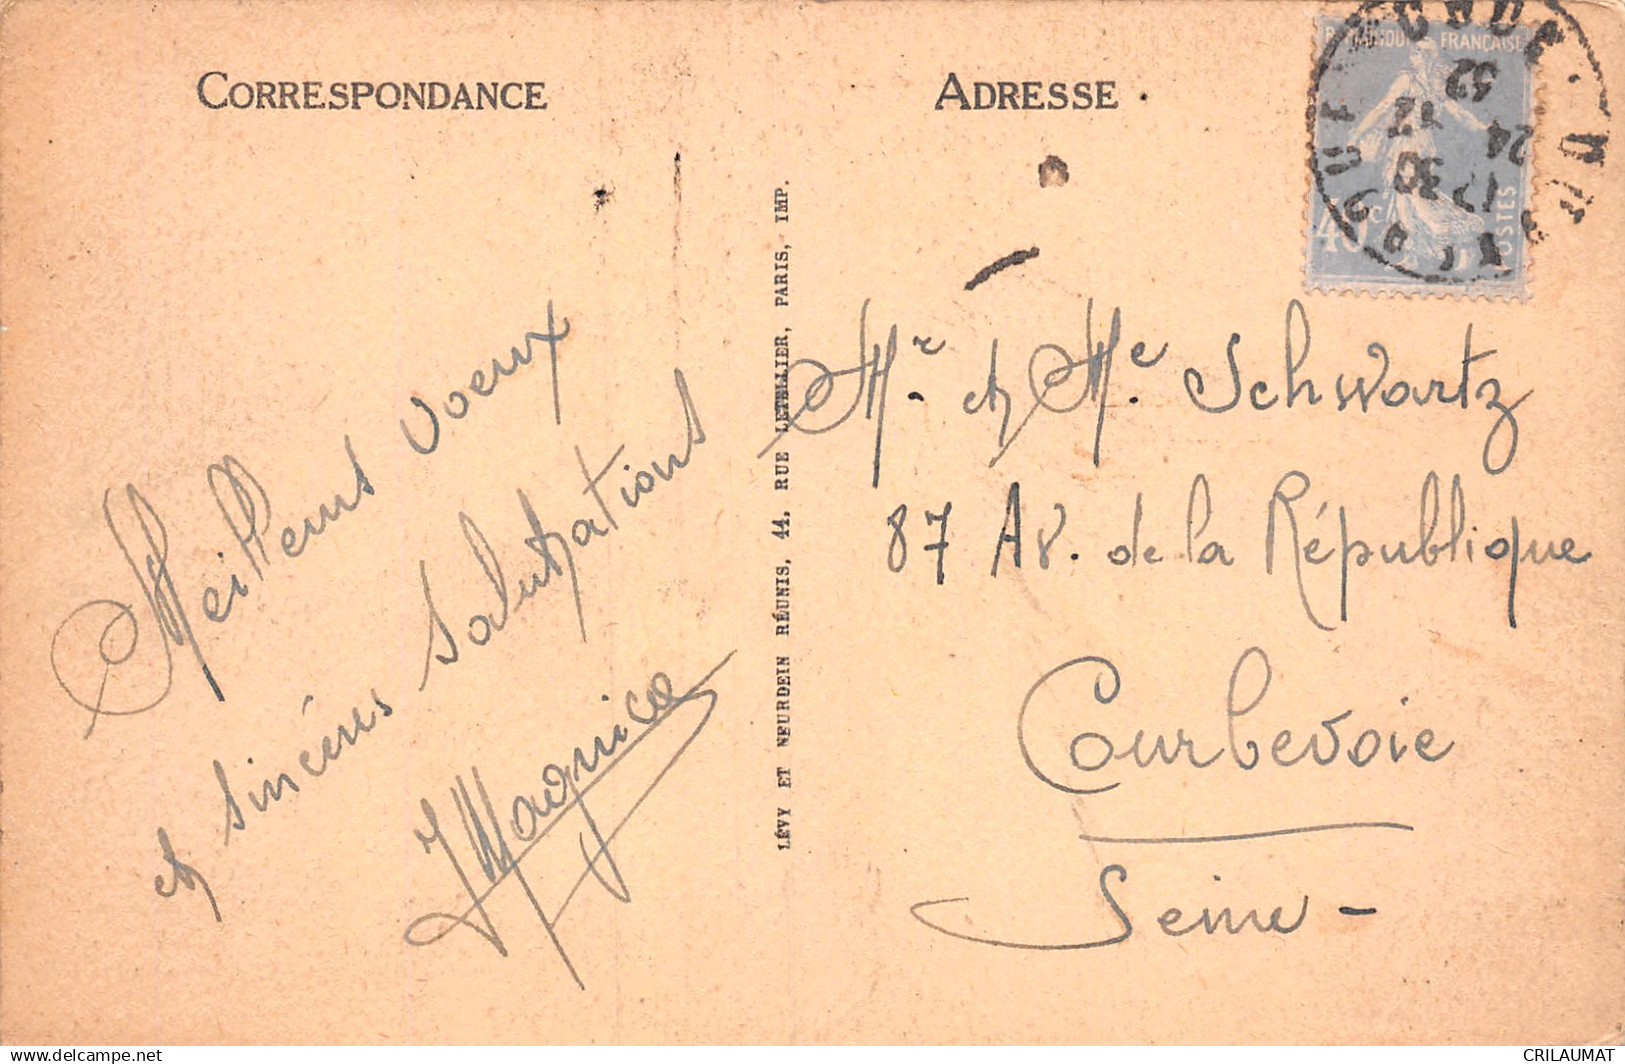 CORRESPONDANCE
Meilleurs voeux
et sincères salutations
LÉVY ET NEURDEIN RÉUNIS, 44, RUE LETELLIER, PARIS, IMP.
ADRESSE
FRANÇAISE
40c
POSTES
17 30
24 12
32
Mr. et Me. Schwartz
87 Av. de la République
Courbevoie
Seine -
www.delcampe.net
CRILAUMAT